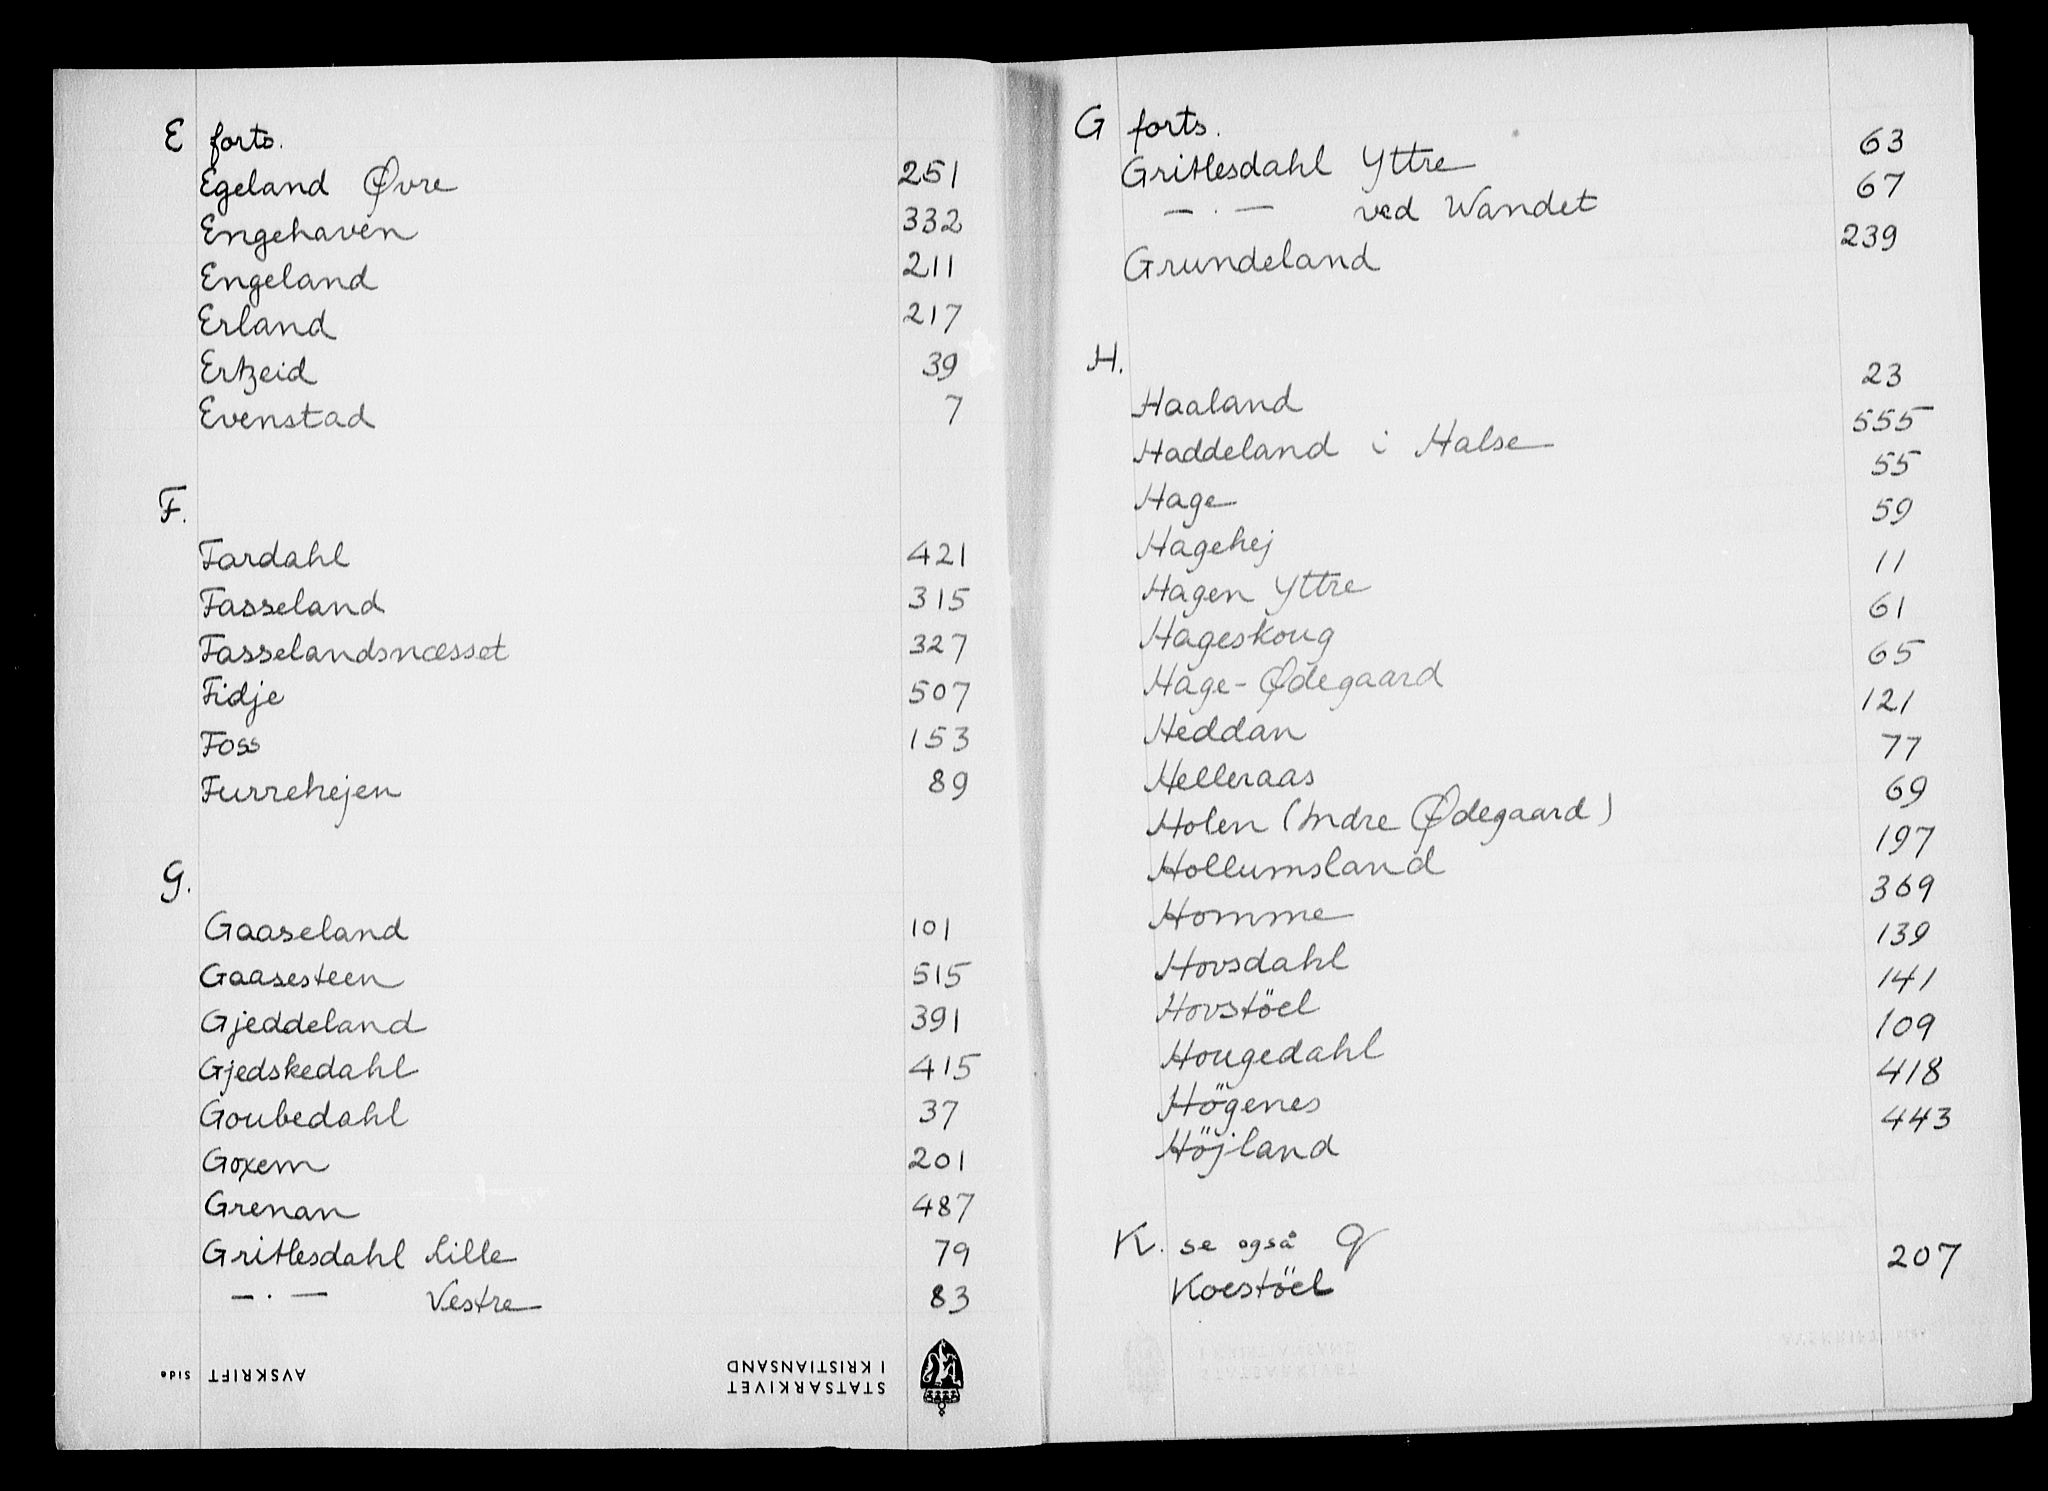 E forts.
Egeland Øvre 251
Engehaven 332
Engeland 211
Erland 217
Ertzeid 39
Evenstad 7
F.
Fardahl 421
Fasseland 315
Fasselandsnæsset 327
Fidje 507
Foss 153
Furrehejen 89
G.
Gaaseland 101
Gaasesteen 515
Gjeddeland 391
Gjedskedahl 415
Goubedahl 37
Goxem 201
Grenan 487
Gritlesdahl Lille 79
— . — Vestre 83
STATSARKIVET
I KRISTIANSAND
AVSKRIFT Side
G forts.
Gritlesdahl Yttre 63
— . — ved Wandet 67
Grundeland 239
H.
Haaland 23
Haddeland i Halse 555
Hage 55
Hagehej 59
Hagen Yttre 11
Hageskoug 61
Hage-Ødegaard 65
Heddan 121
Helleraas 77
Holen (Indre Ødegaard) 69
Hollumsland 197
Homme 369
Hovsdahl 139
Hovstöel 141
Hougedahl 109
Högenes 418
Höjland 443
K. se også Q
Koestöel 207